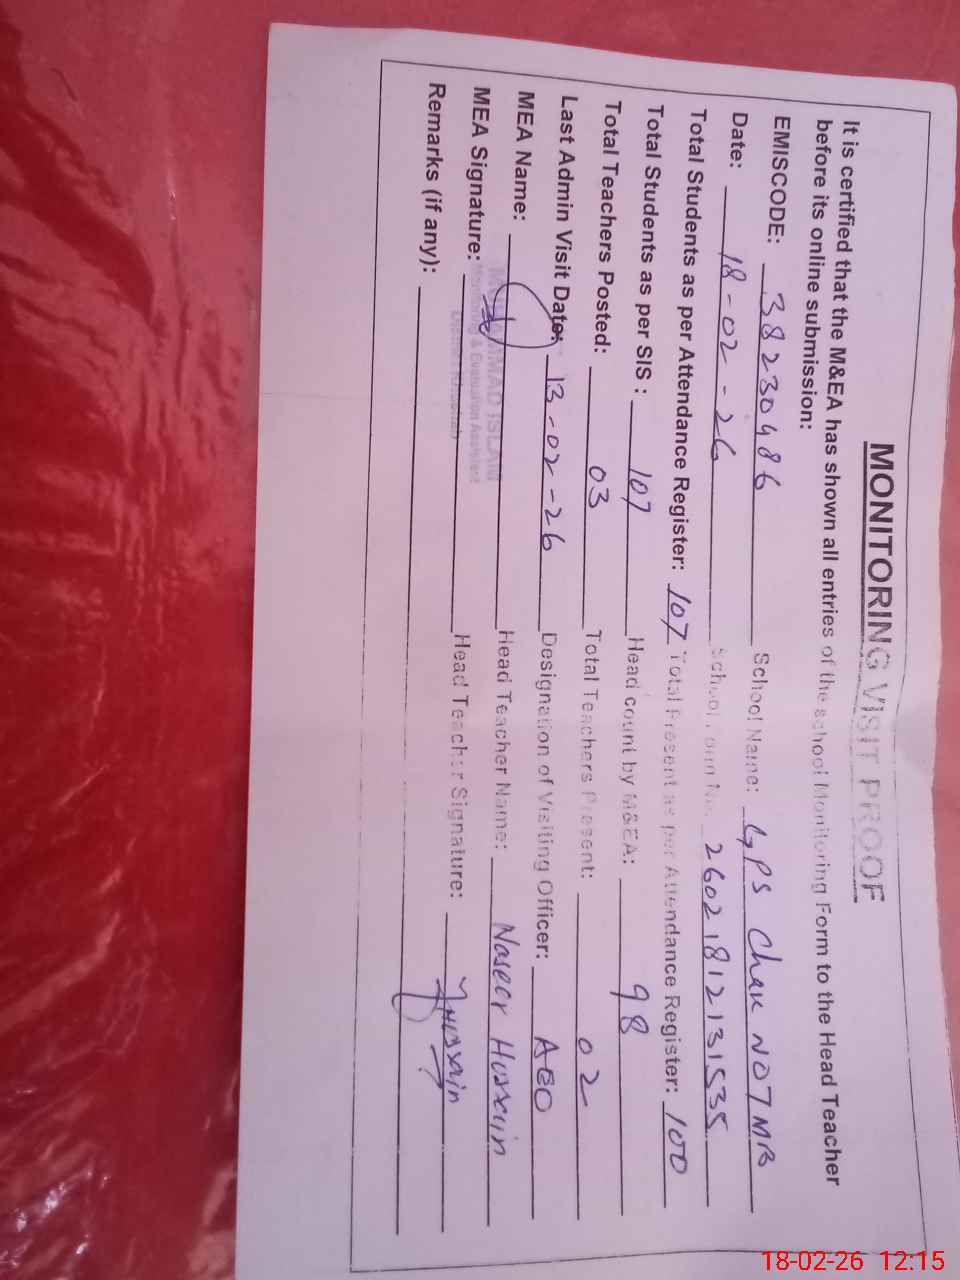 MONITORING VISIT PROOF
It is certified that the M&EA has shown all entries of the school Monitoring Form to the Head Teacher
before its online submission:
EMISCODE: 38230486 School Name: GPS Chak NO 7 MB
Date: 18-02-26 School Form No. 26021812131535
Total Students as per Attendance Register: 107 Total Present as per Attendance Register: 100
Total Students as per SIS : 107 Head count by M&EA: 98
Total Teachers Posted: 03 Total Teachers Present: 02
Last Admin Visit Date: 13-02-26 Designation of Visiting Officer: AEO
MEA Name: Head Teacher Name: Naseer Hussain
MUHAMMAD ISLAM
Monitoring & Evaluation Assistant
District Khushab
MEA Signature: Head Teacher Signature: Hussain
Remarks (if any):
18-02-26 12:15